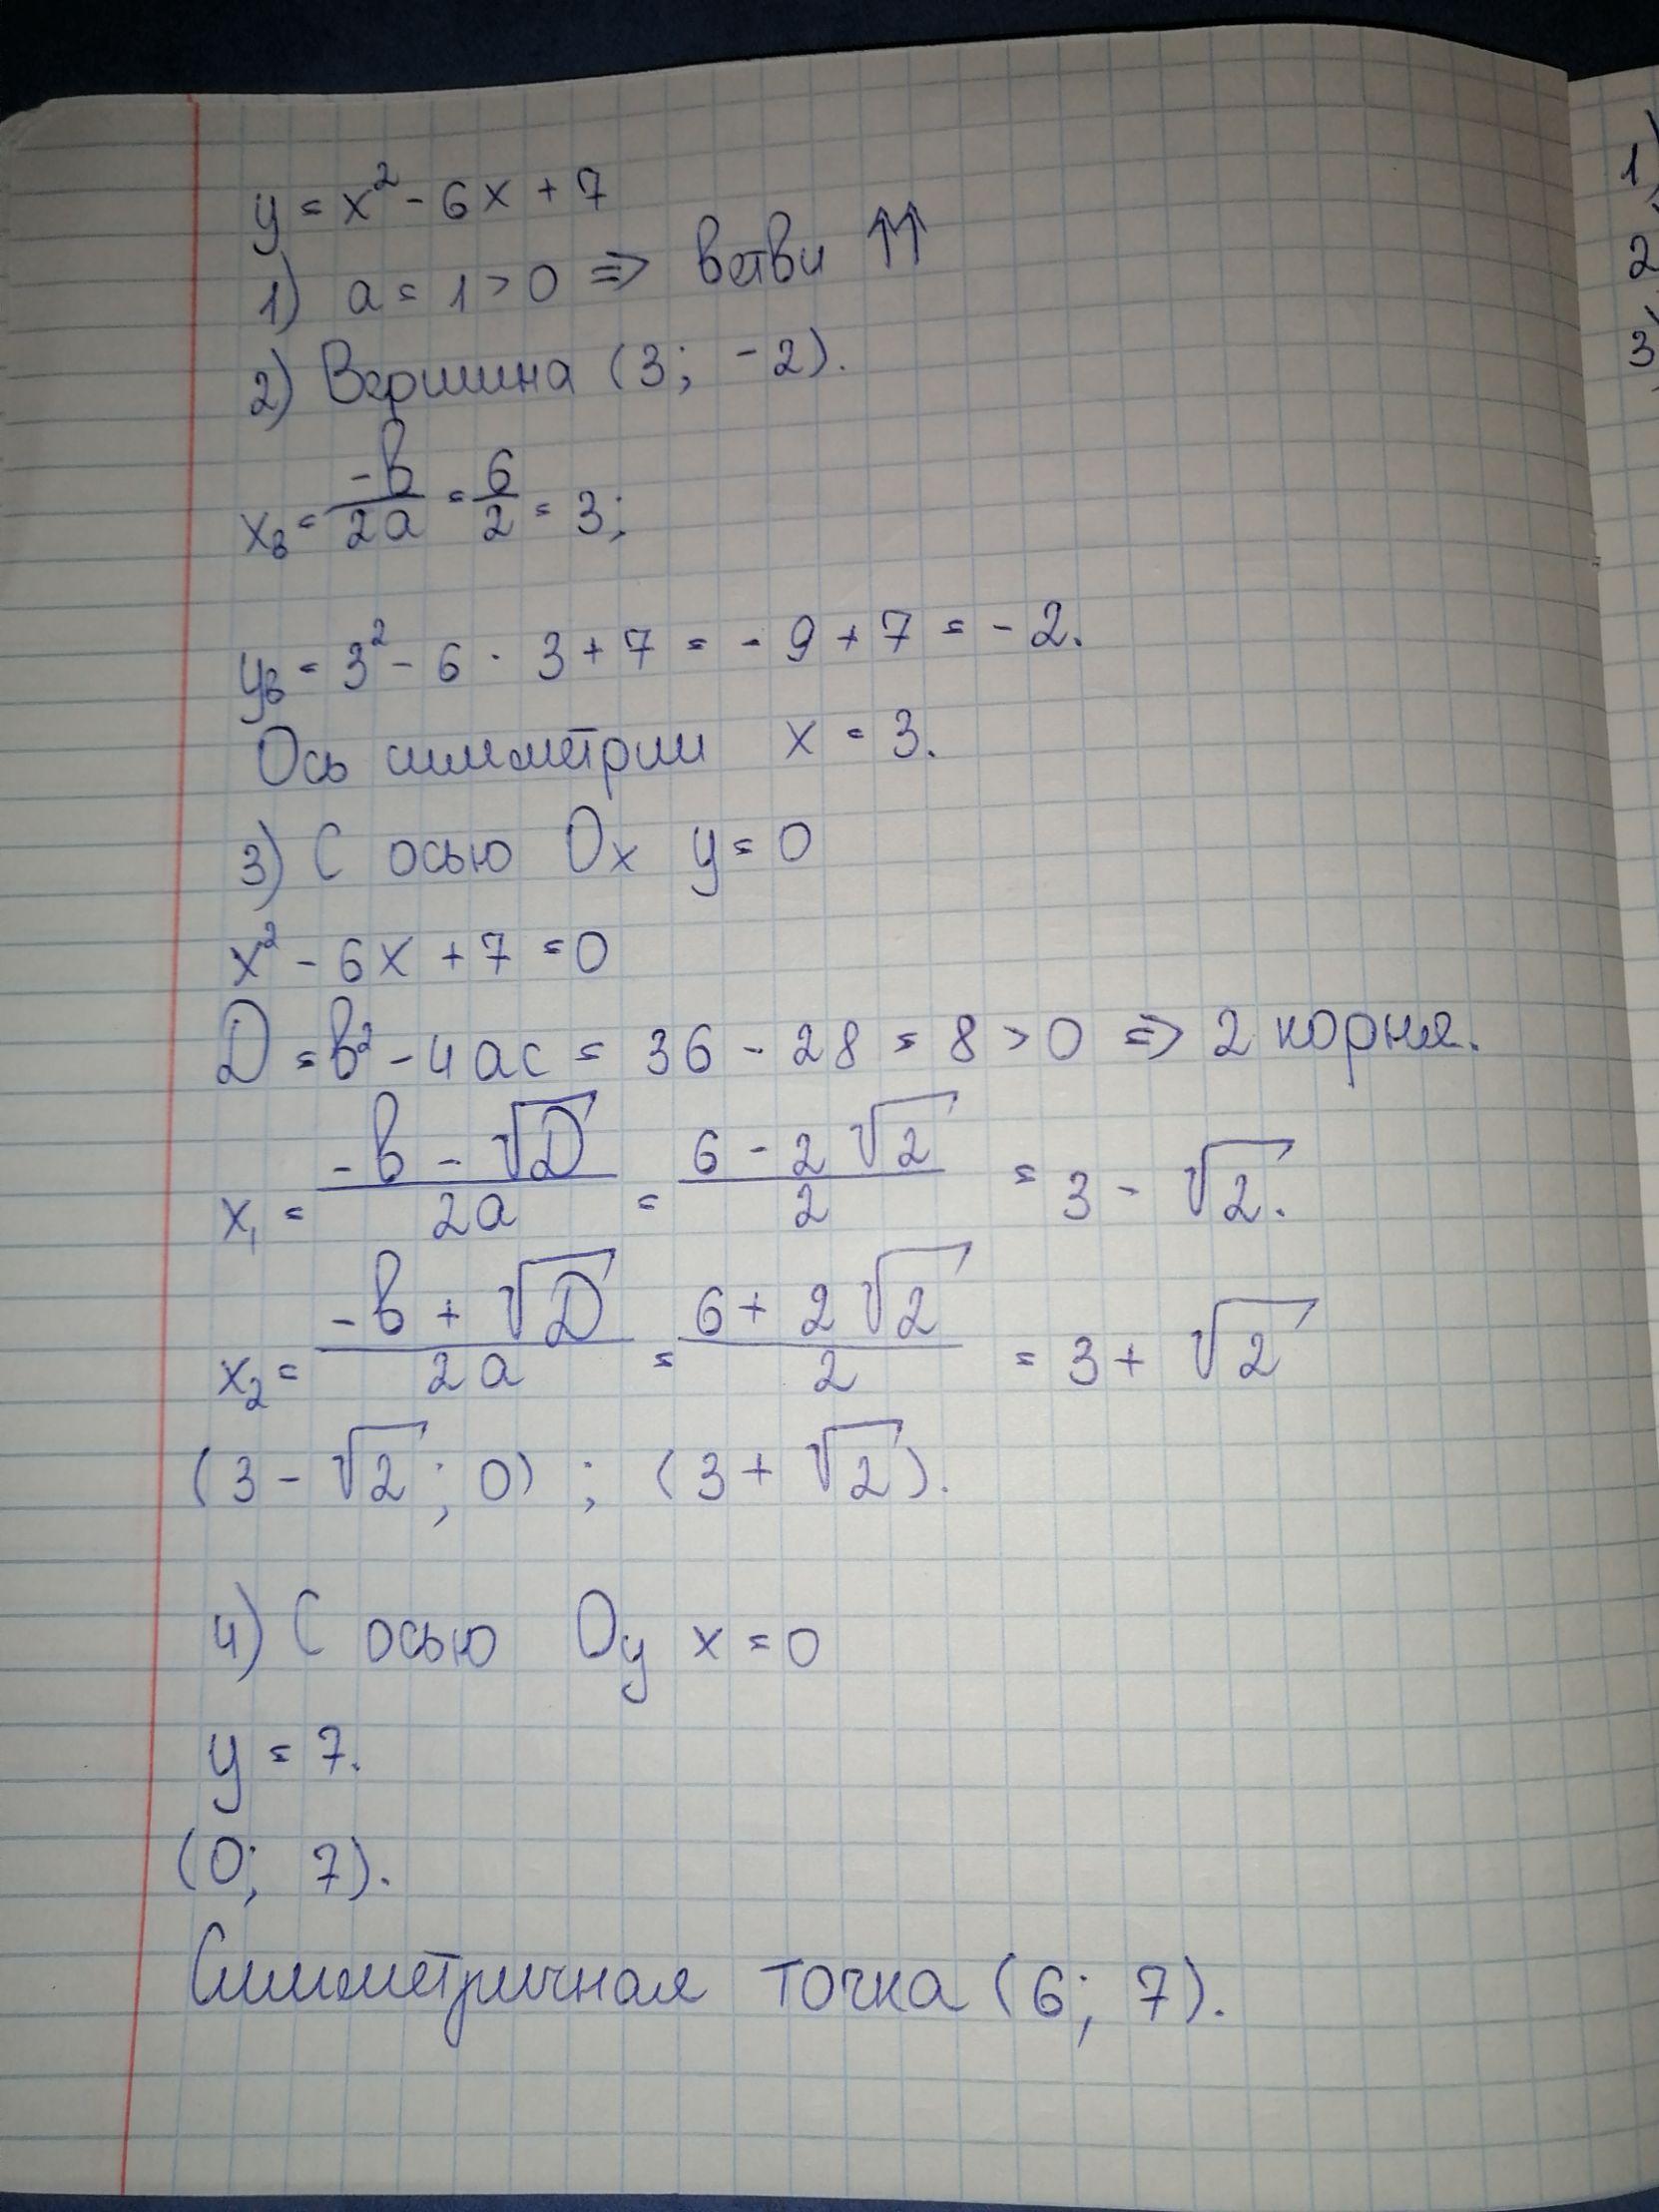 y = x² - 6x + 7
1) a = 1 > 0 => ветви ↑↑
2) Вершина (3; -2).
xв = -b/2a = 6/2 = 3;
yв = 3² - 6 · 3 + 7 = - 9 + 7 = - 2.
Ось симметрии x = 3.
3) С осью Ox y = 0
x² - 6x + 7 = 0
D = b² - 4ac = 36 - 28 = 8 > 0 => 2 корня.
x₁ = (-b - √D)/2a = (6 - 2√2)/2 = 3 - √2.
x₂ = (-b + √D)/2a = (6 + 2√2)/2 = 3 + √2
(3 - √2; 0) ; (3 + √2).
4) С осью Oy x = 0
y = 7.
(0; 7).
Симметричная точка (6; 7).
1)
2
3)